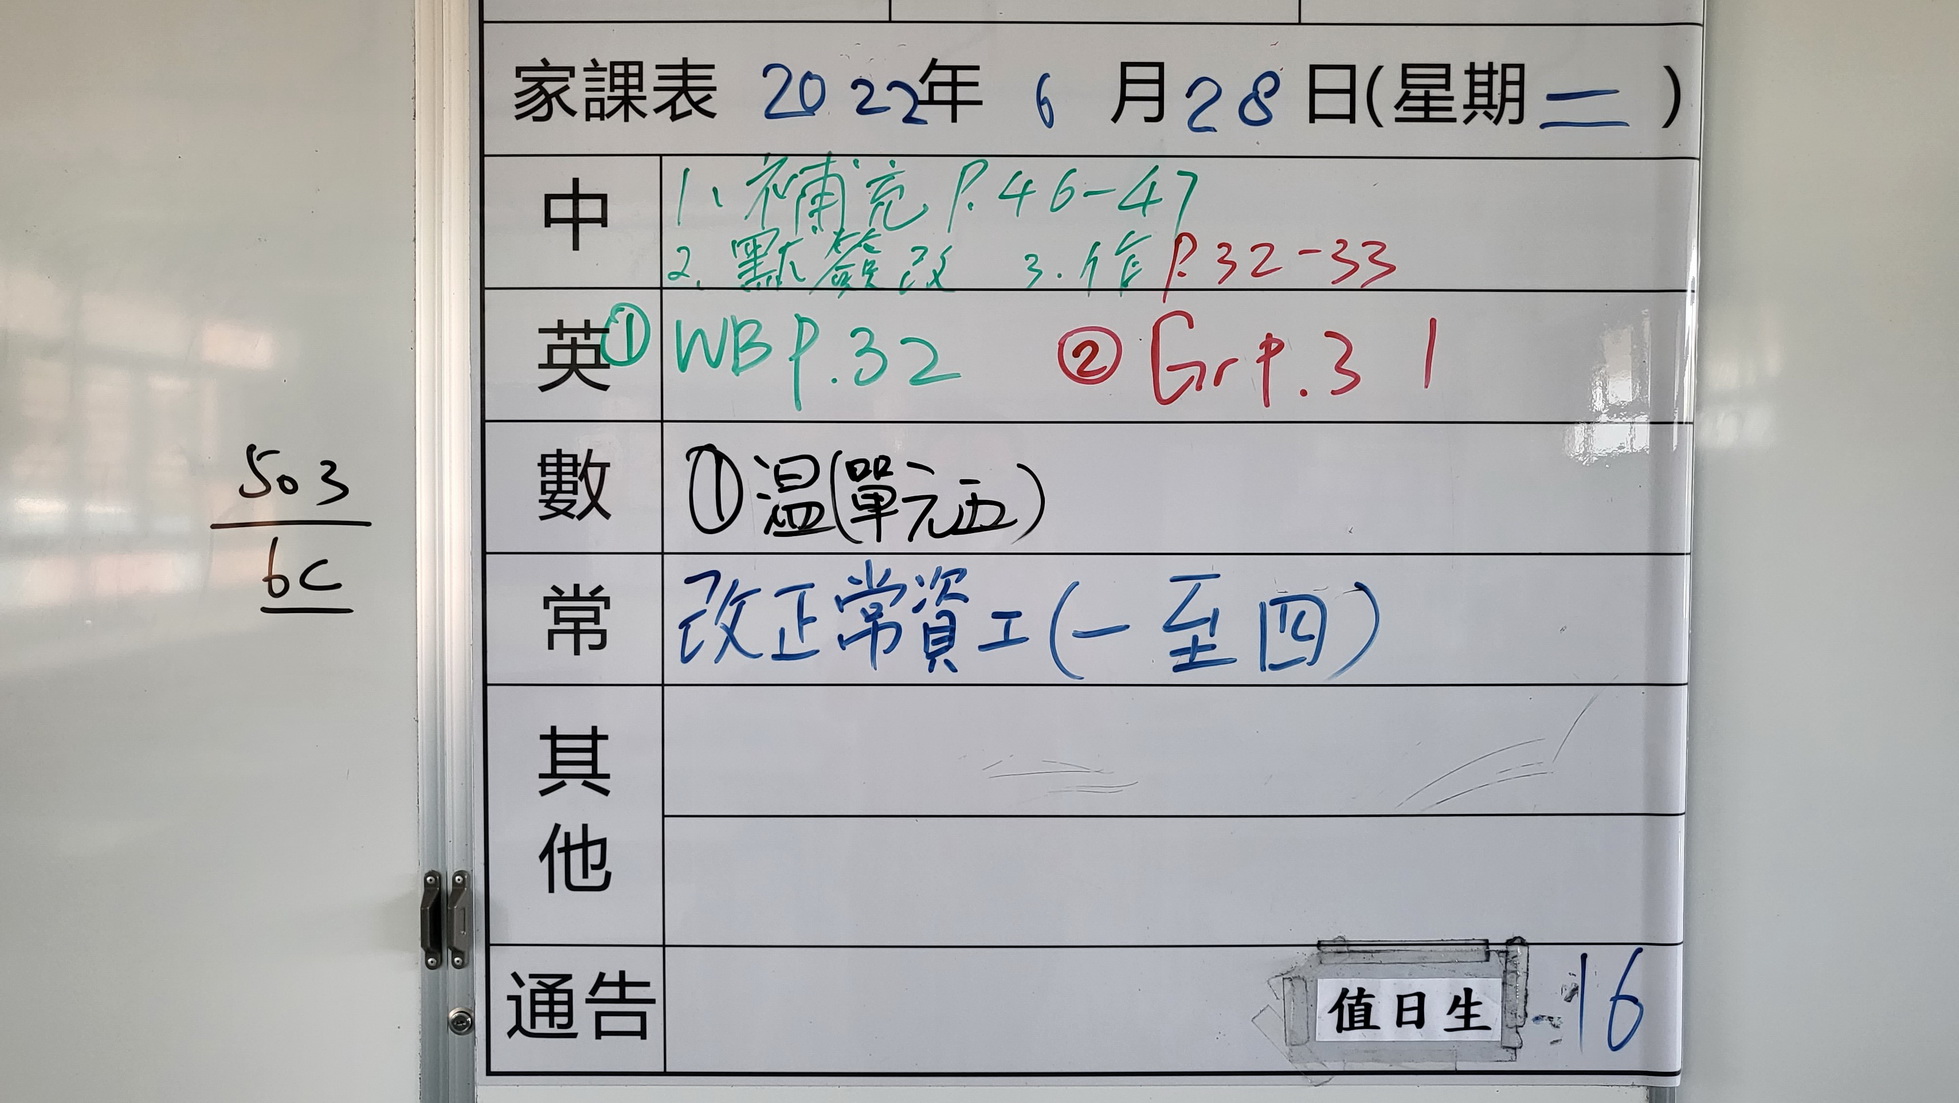 家課表 2022年 6 月 28 日(星期二)
中
1、補充 P.46-47
2. 默簽改 3.作 P.32-33
英
① WB P.32 ② Gr P.31
數
①温(單元五)
常
改正常資工(一至四)
其他
通告
值日生 16
503
6C